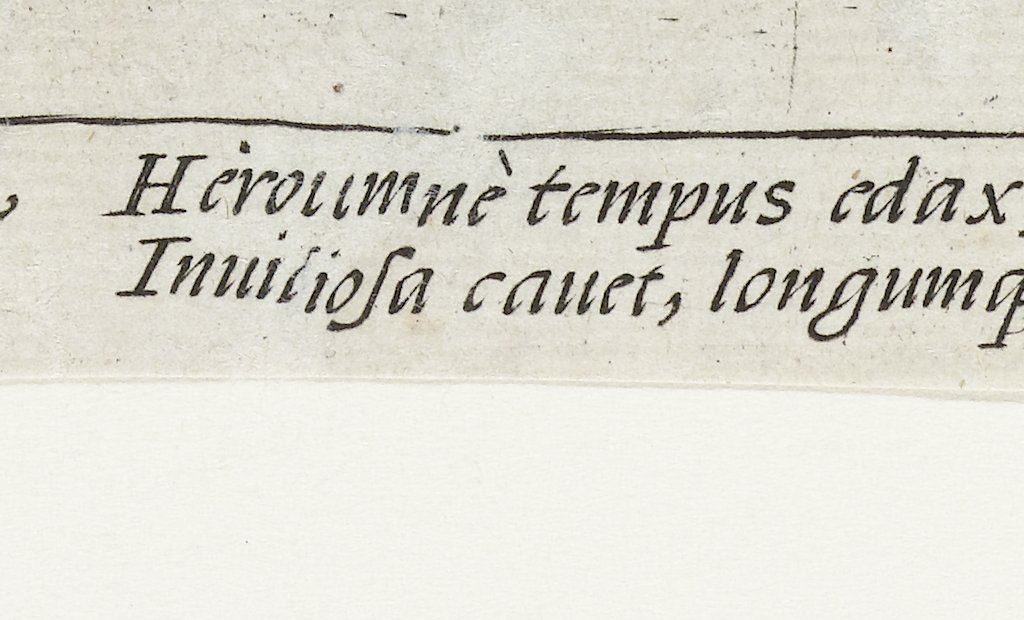 Heroum nè tempus edax,
Inuidiosa cauet, longumq